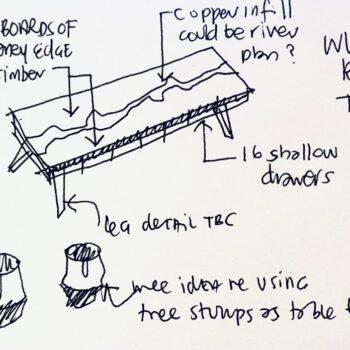 BOARDS OF
ney EDGE
timber
Copper infill
could be river
plan?
16 shallow
drawers
leg detail TBC
idea re using
tree stumps as table